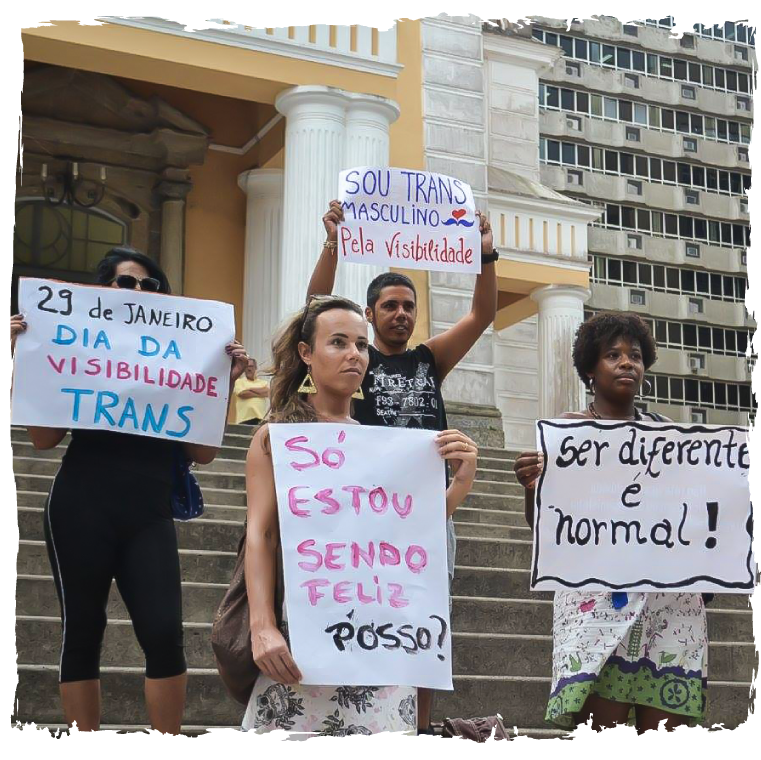 SOU TRANS
MASCULINO
Pela Visibilidade
29 de JANEIRO
DIA DA
VISIBILIDADE
TRANS
SÓ
ESTOU
SENDO
FELIZ
POSSO?
Ser diferente
é
normal!